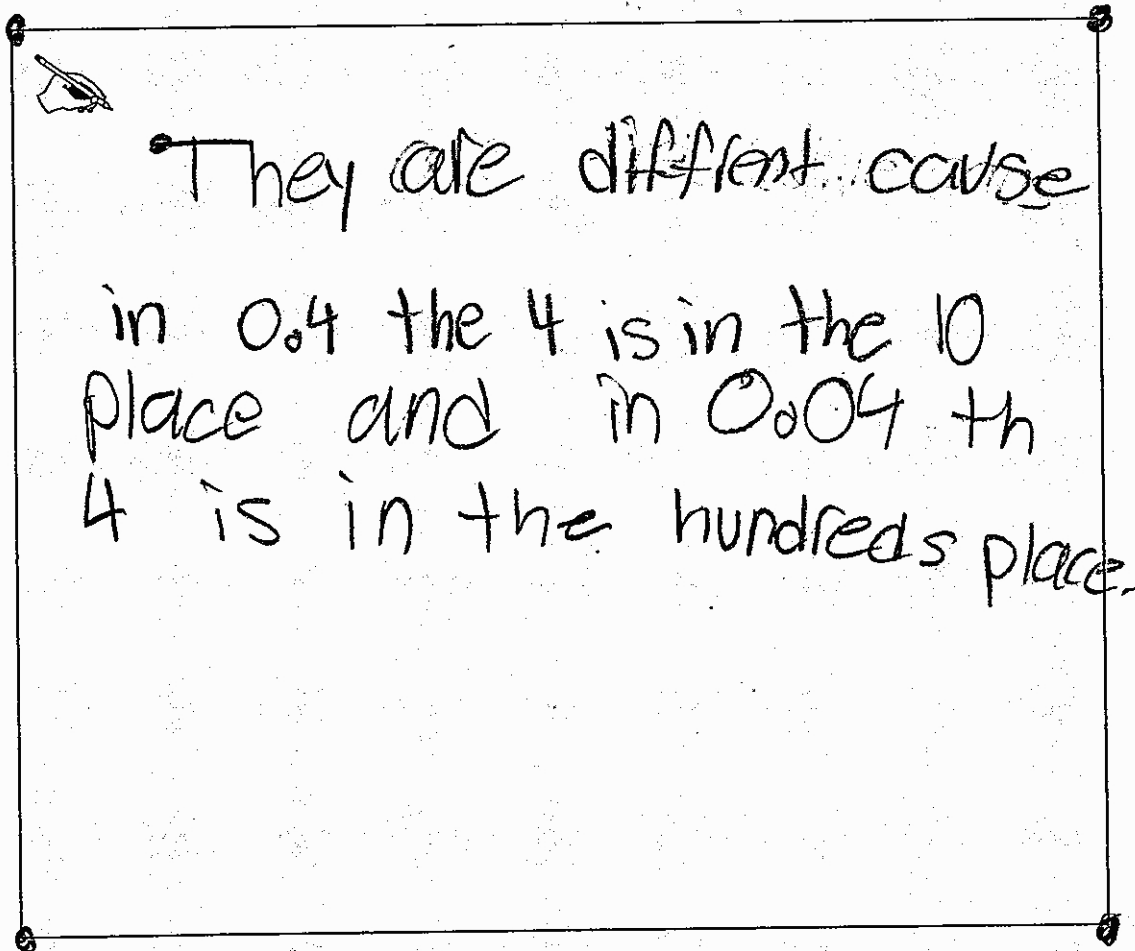 They are diffrent cause
in 0.4 the 4 is in the 10
place and in 0.04 th
4 is in the hundreds place.